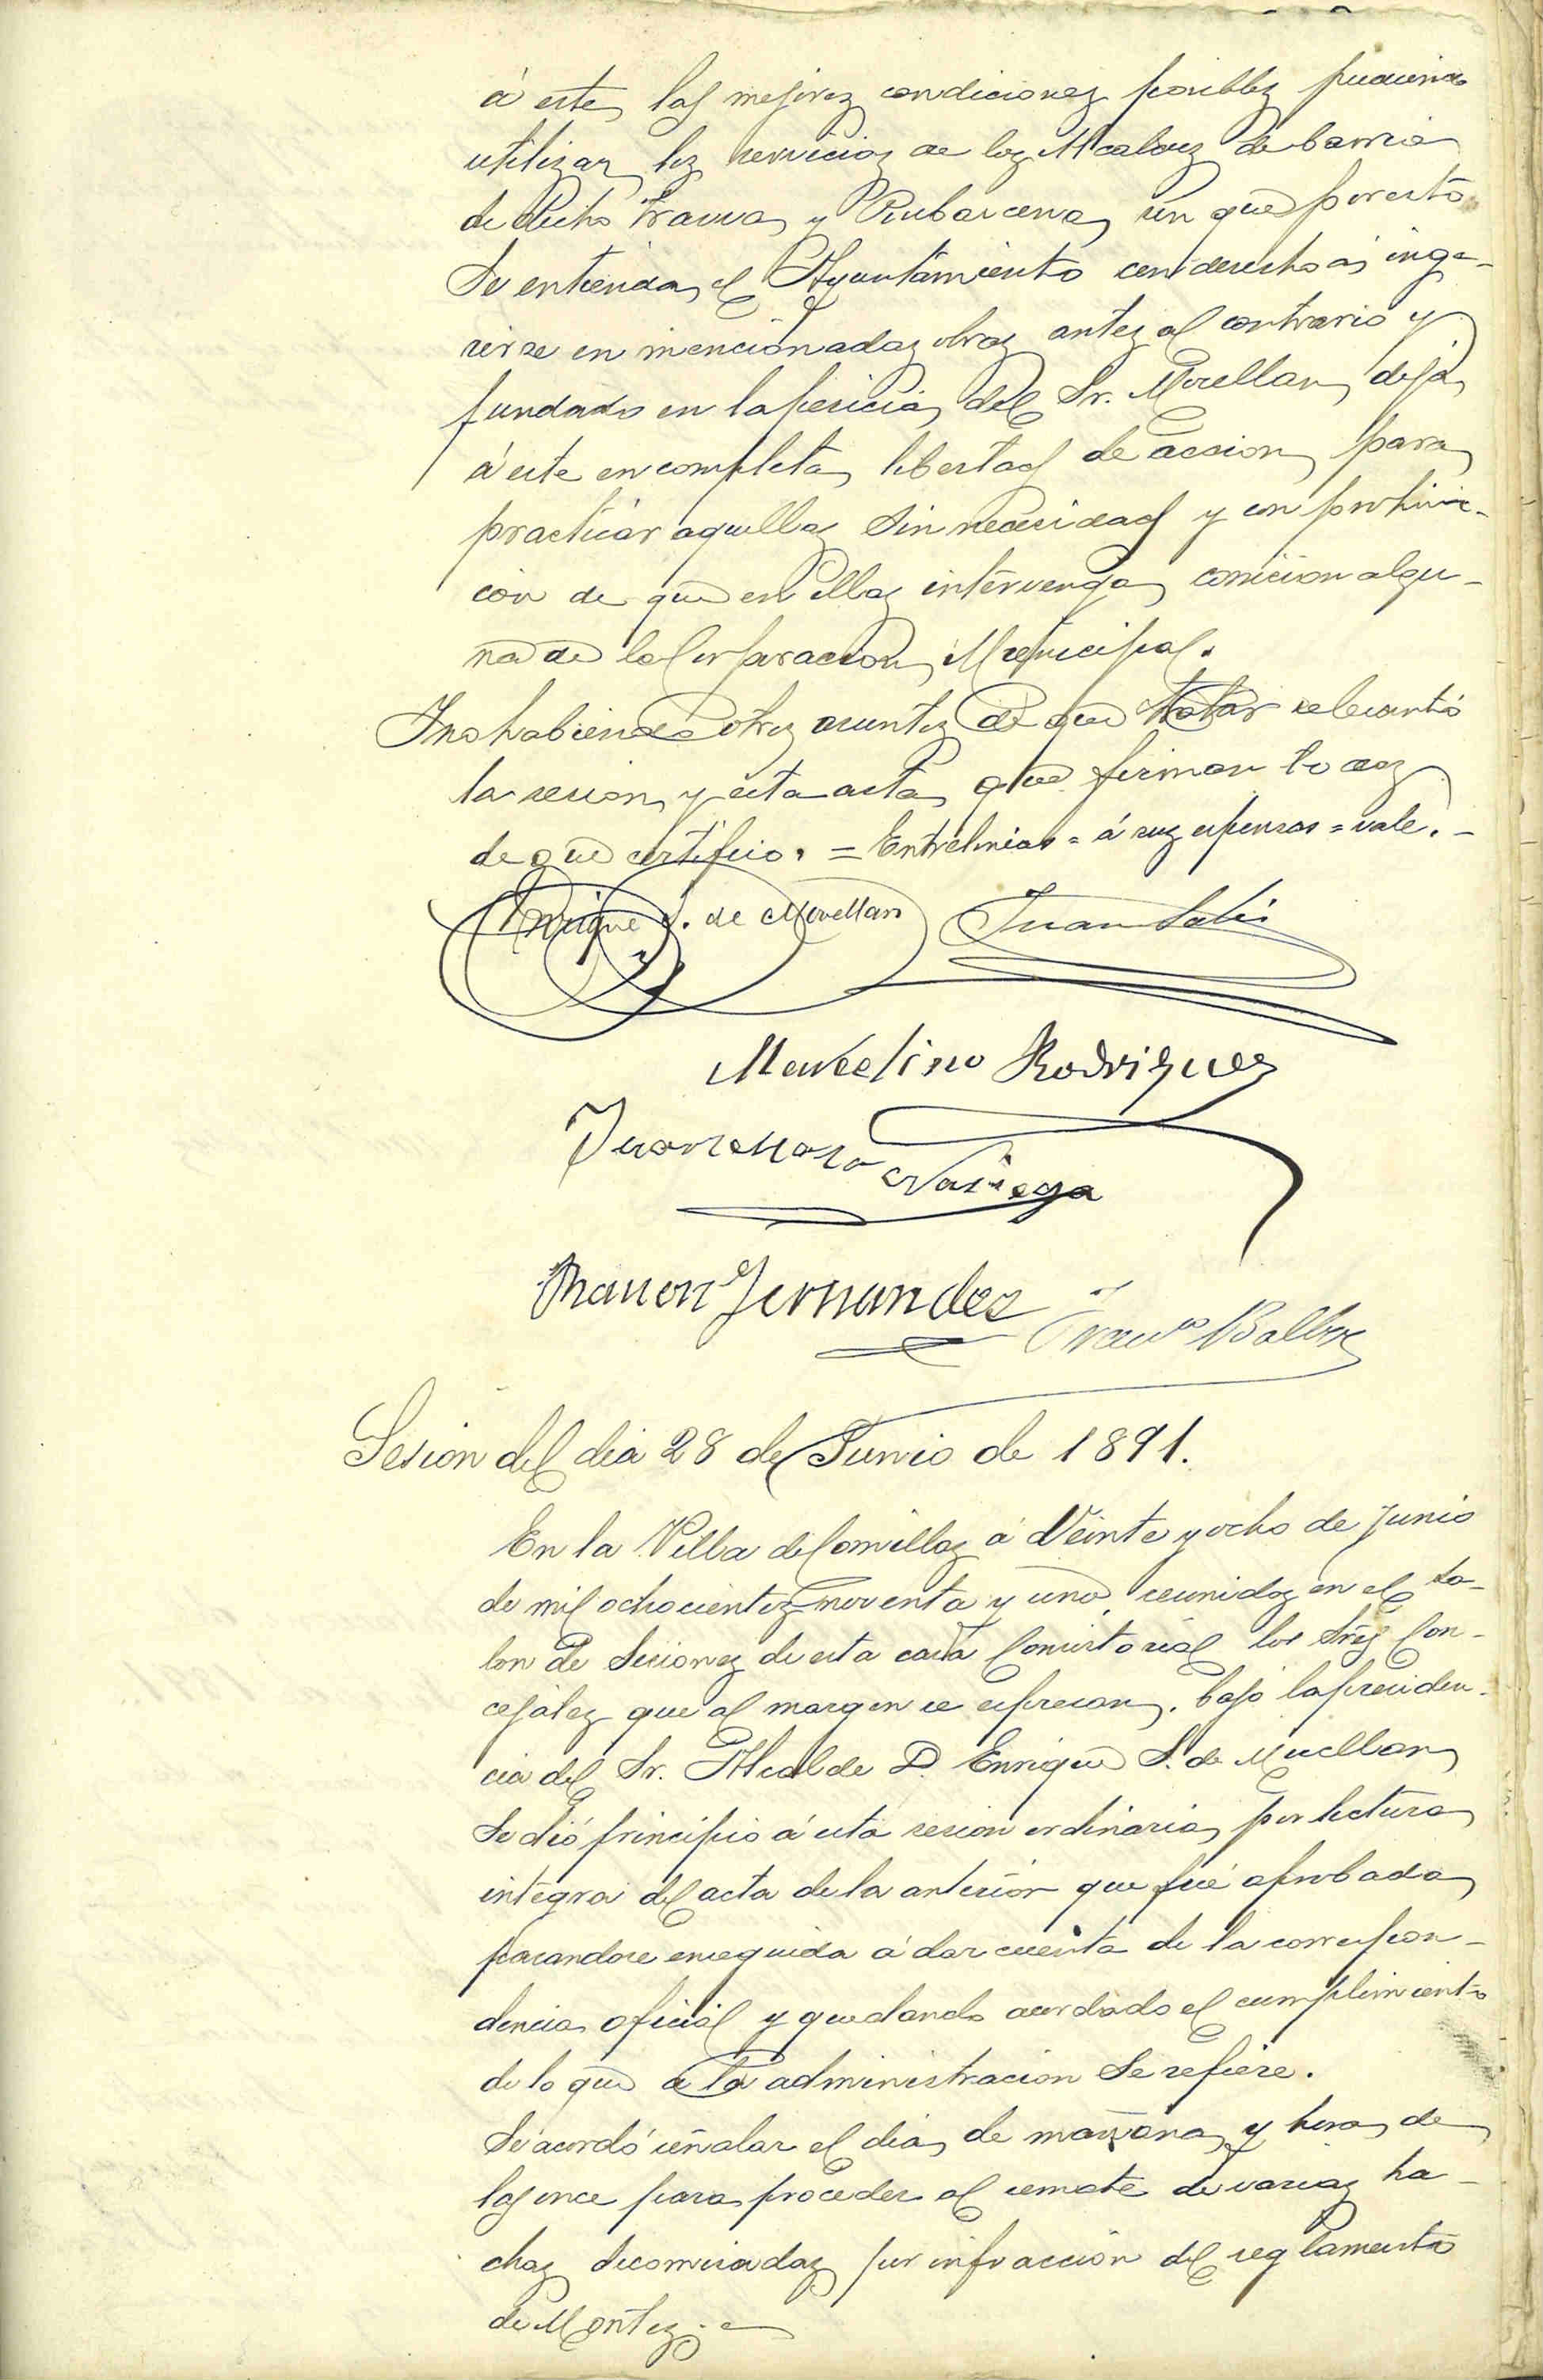 á este las mejores condiciones posibles pudiendo
utilizar los servicios de los Alcaldes de barrio
de dicho Trasvia y Rubarcena, sin que por esto
se entienda el Ayuntamiento con derecho á inge-
rirse en mencionadas obras antes al contrario y
fundado en la pericia del Sr. Movellan, deja
á este en completa libertad de accion para
practicar aquellas sin necesidad y con prohivi-
ción de que en ellas intervenga comision algu-
na de la Corporacion Municipal.
Y no habiendo otros asuntos de que tratar se levantó
la sesion y esta acta que firman todos
de que certifico. = Entrelineas = á sus espensas = vale. -
Enrique S. de Movellan Juan
Marcelino Rodriguez
Juan Noriega
Ramon Fernandez Franco Balbas
Sesion del dia 28 de Junio de 1891.
En la Villa de Comillas á Veinte y ocho de Junio
de mil ochocientos noventa y uno, reunidos en el sa-
lon de Sesiones de esta casa Consistorial los Sres Con-
cejales que al margen se espresan, bajo la presiden-
cia del Sr. Alcalde D. Enrique S. de Movellan,
se dió principio á esta sesion ordinaria por lectura
integra del acta de la anterior que fué aprobada,
pasandose enseguida á dar cuenta de la correspon-
dencia oficial y quedando acordado el cumplimiento
de lo que á la administracion se refiere.
Se acordó señalar el dia de mañana y hora de
las once para proceder al remate de varias ha-
chas decomisadas por infracción del reglamento
de Montes. =